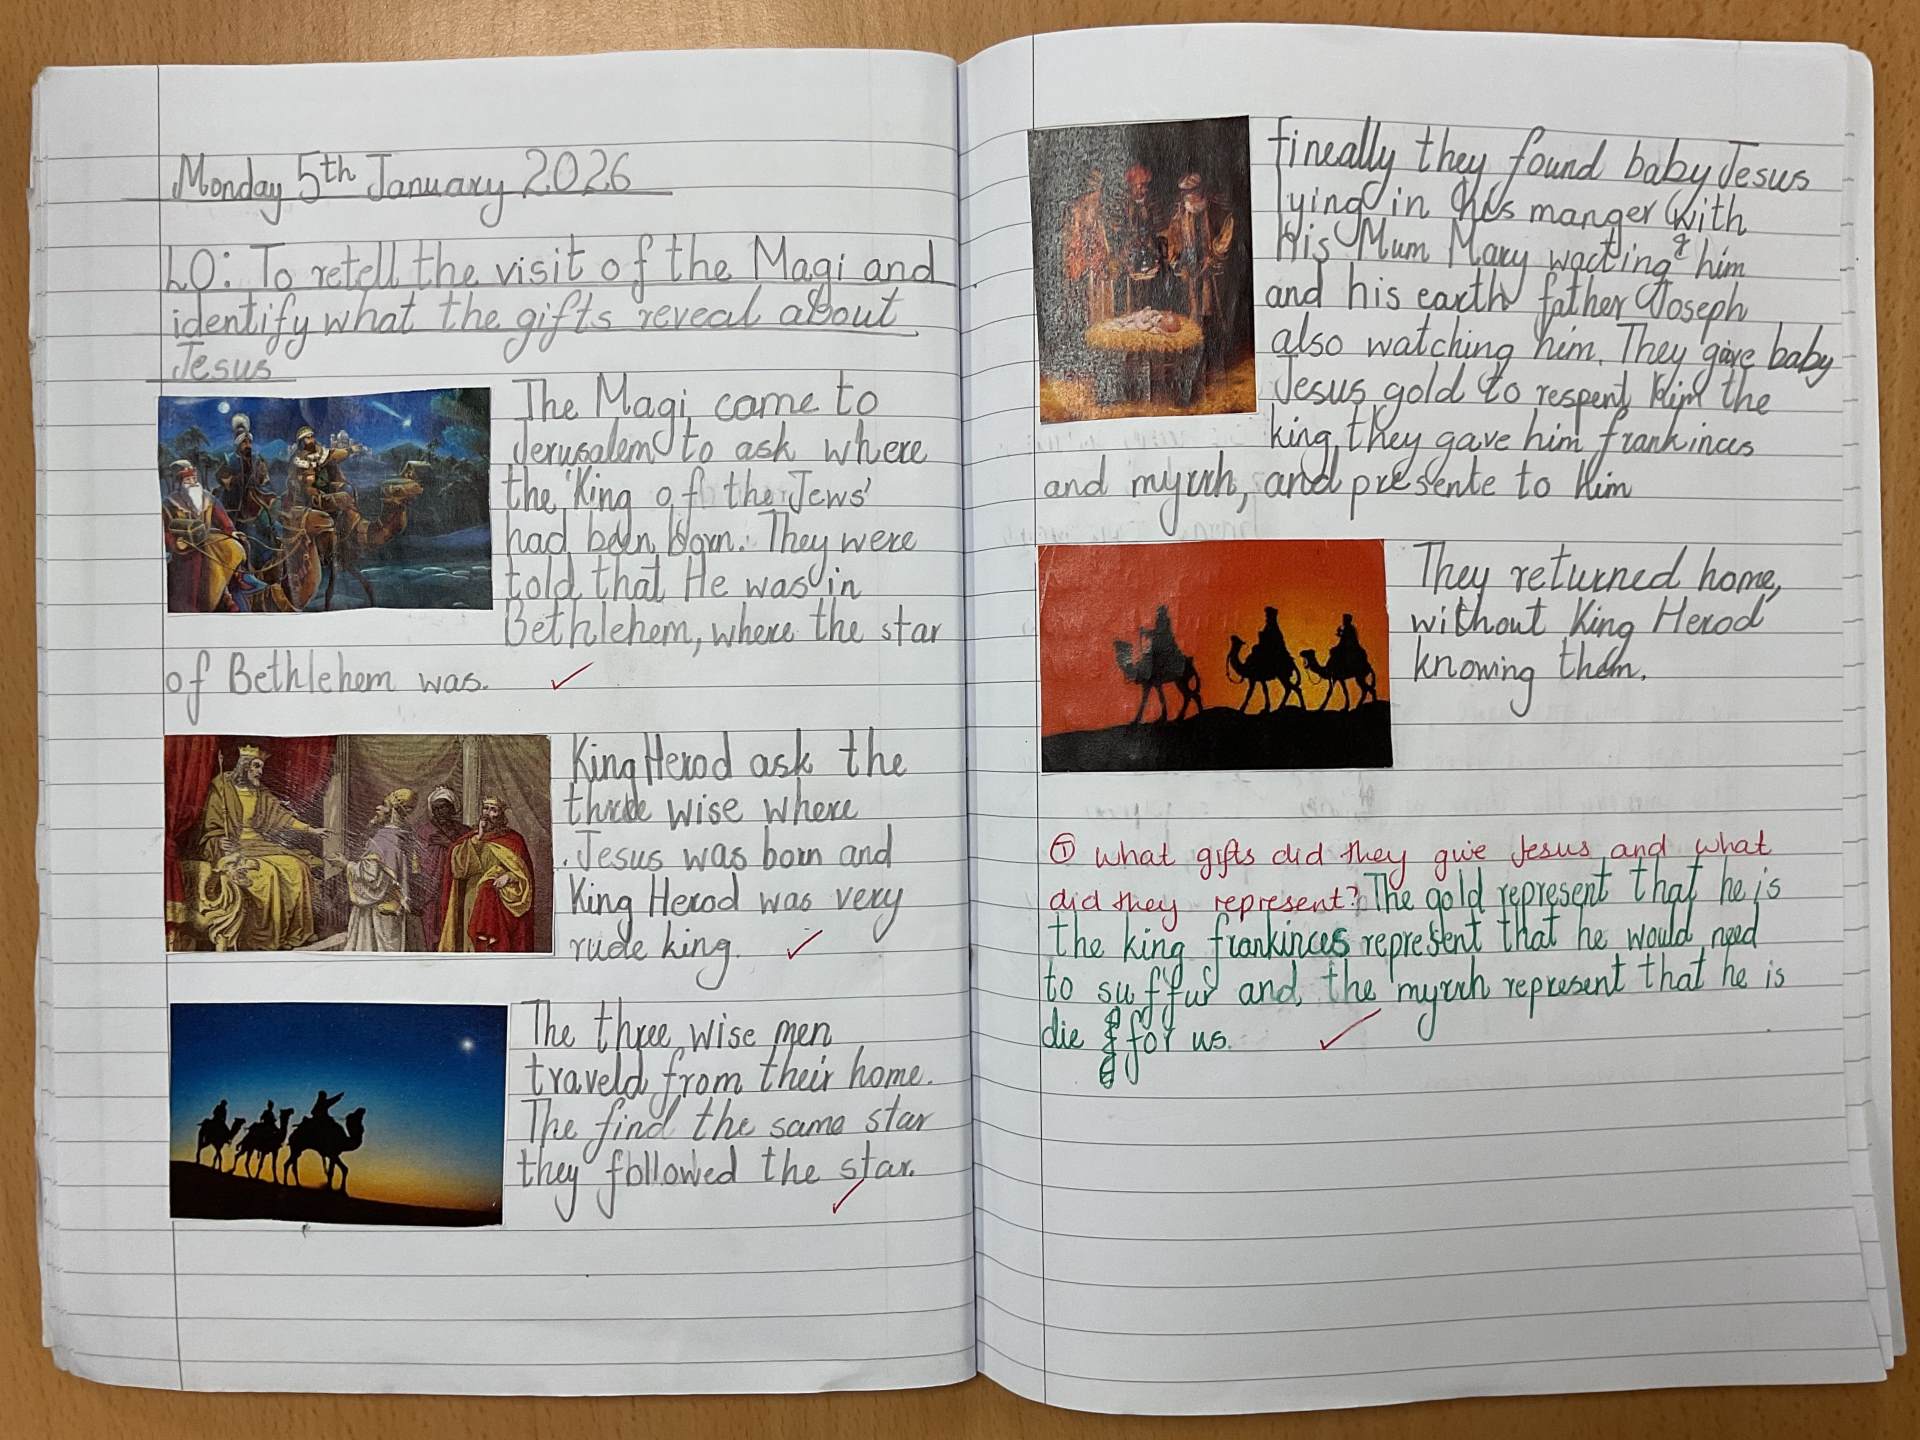 Monday 5th January 2026
LO: To retell the visit of the Magi and
identify what the gifts reveal about
Jesus
The Magi came to
Jerusalem to ask where
the 'King of the Jews'
had been born. They were
told that He was in
Bethlehem, where the star
of Bethlehem was.
King Herod ask the
three wise where
Jesus was born and
King Herod was very
rude king.
The three wise men
traveld from their home.
The find the same star
they followed the star.
fineally they found baby Jesus
lying in his manger with
His Mum Mary wacting him
and his earth father Joseph
also watching him. They gave baby
Jesus gold to respent Him the
king, they gave him frankinces
and myrrh, and presente to Him
They returned home,
without King Herod
knowing them.
T What gifts did they give Jesus and what
did they represent? The gold represent that he is
the king frankinces represent that he would need
to suffur and, the myrrh represent that he is
die for us.